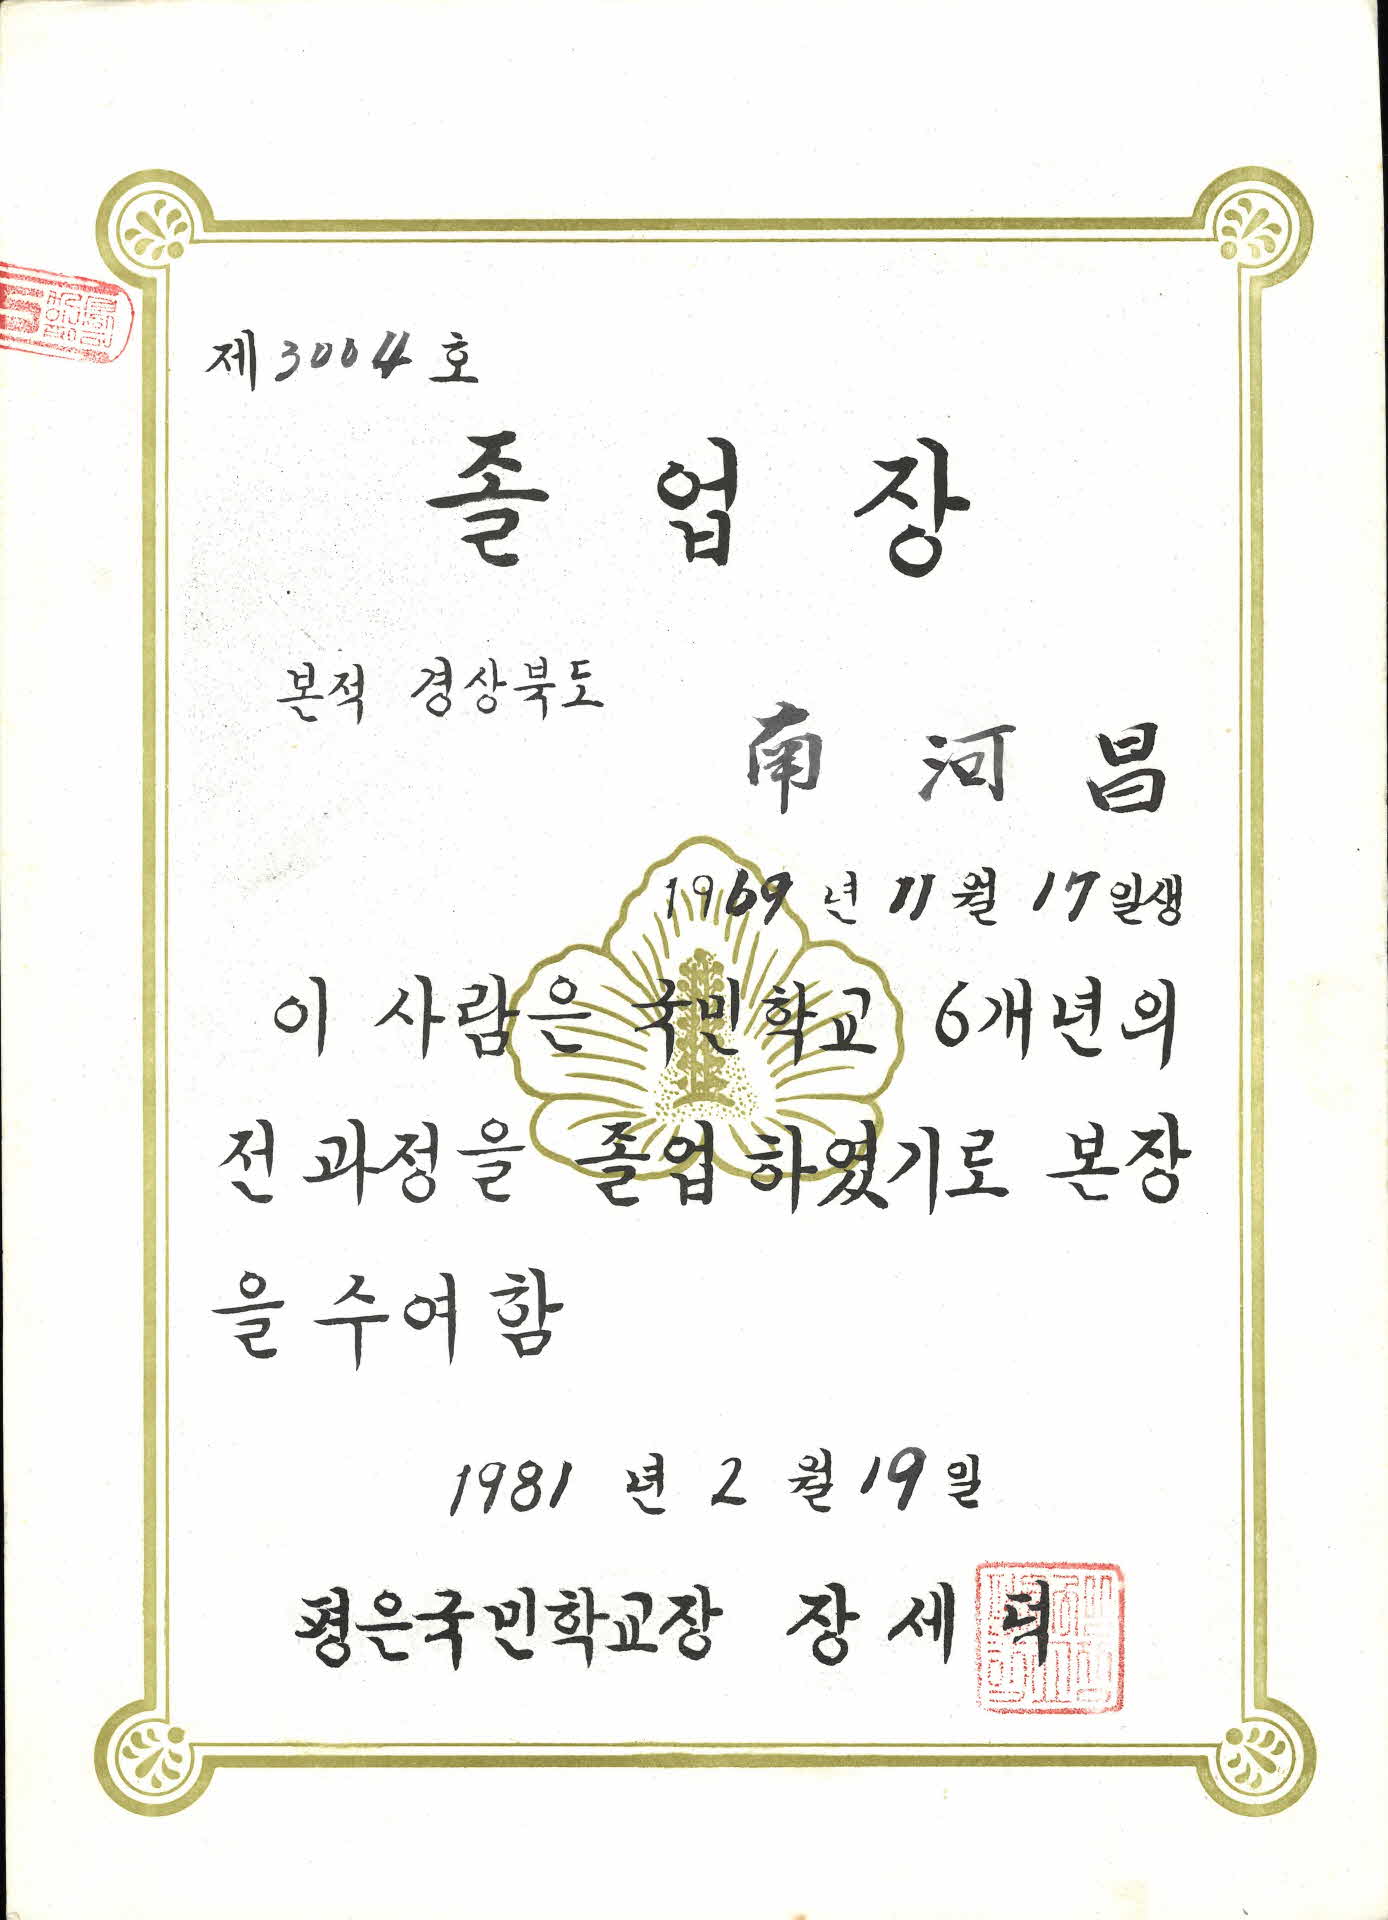 제 3004 호
졸 업 장
본적 경상북도
南 河 昌
1969 년 11 월 17 일생
이 사람은 국민학교 6개년의
전 과정을 졸업하였기로 본장
을 수여함
1981 년 2 월 19 일
평은국민학교장 장 세 덕